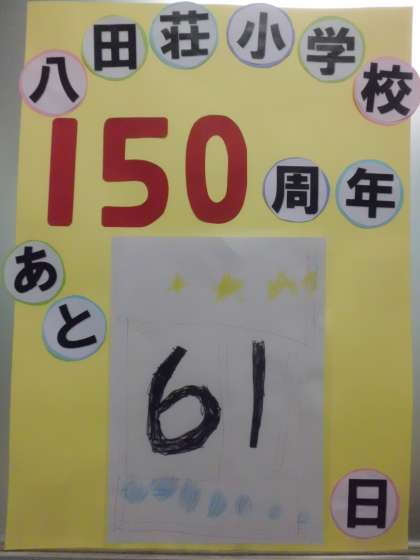 八田荘小学校
150周年
あと
61
日